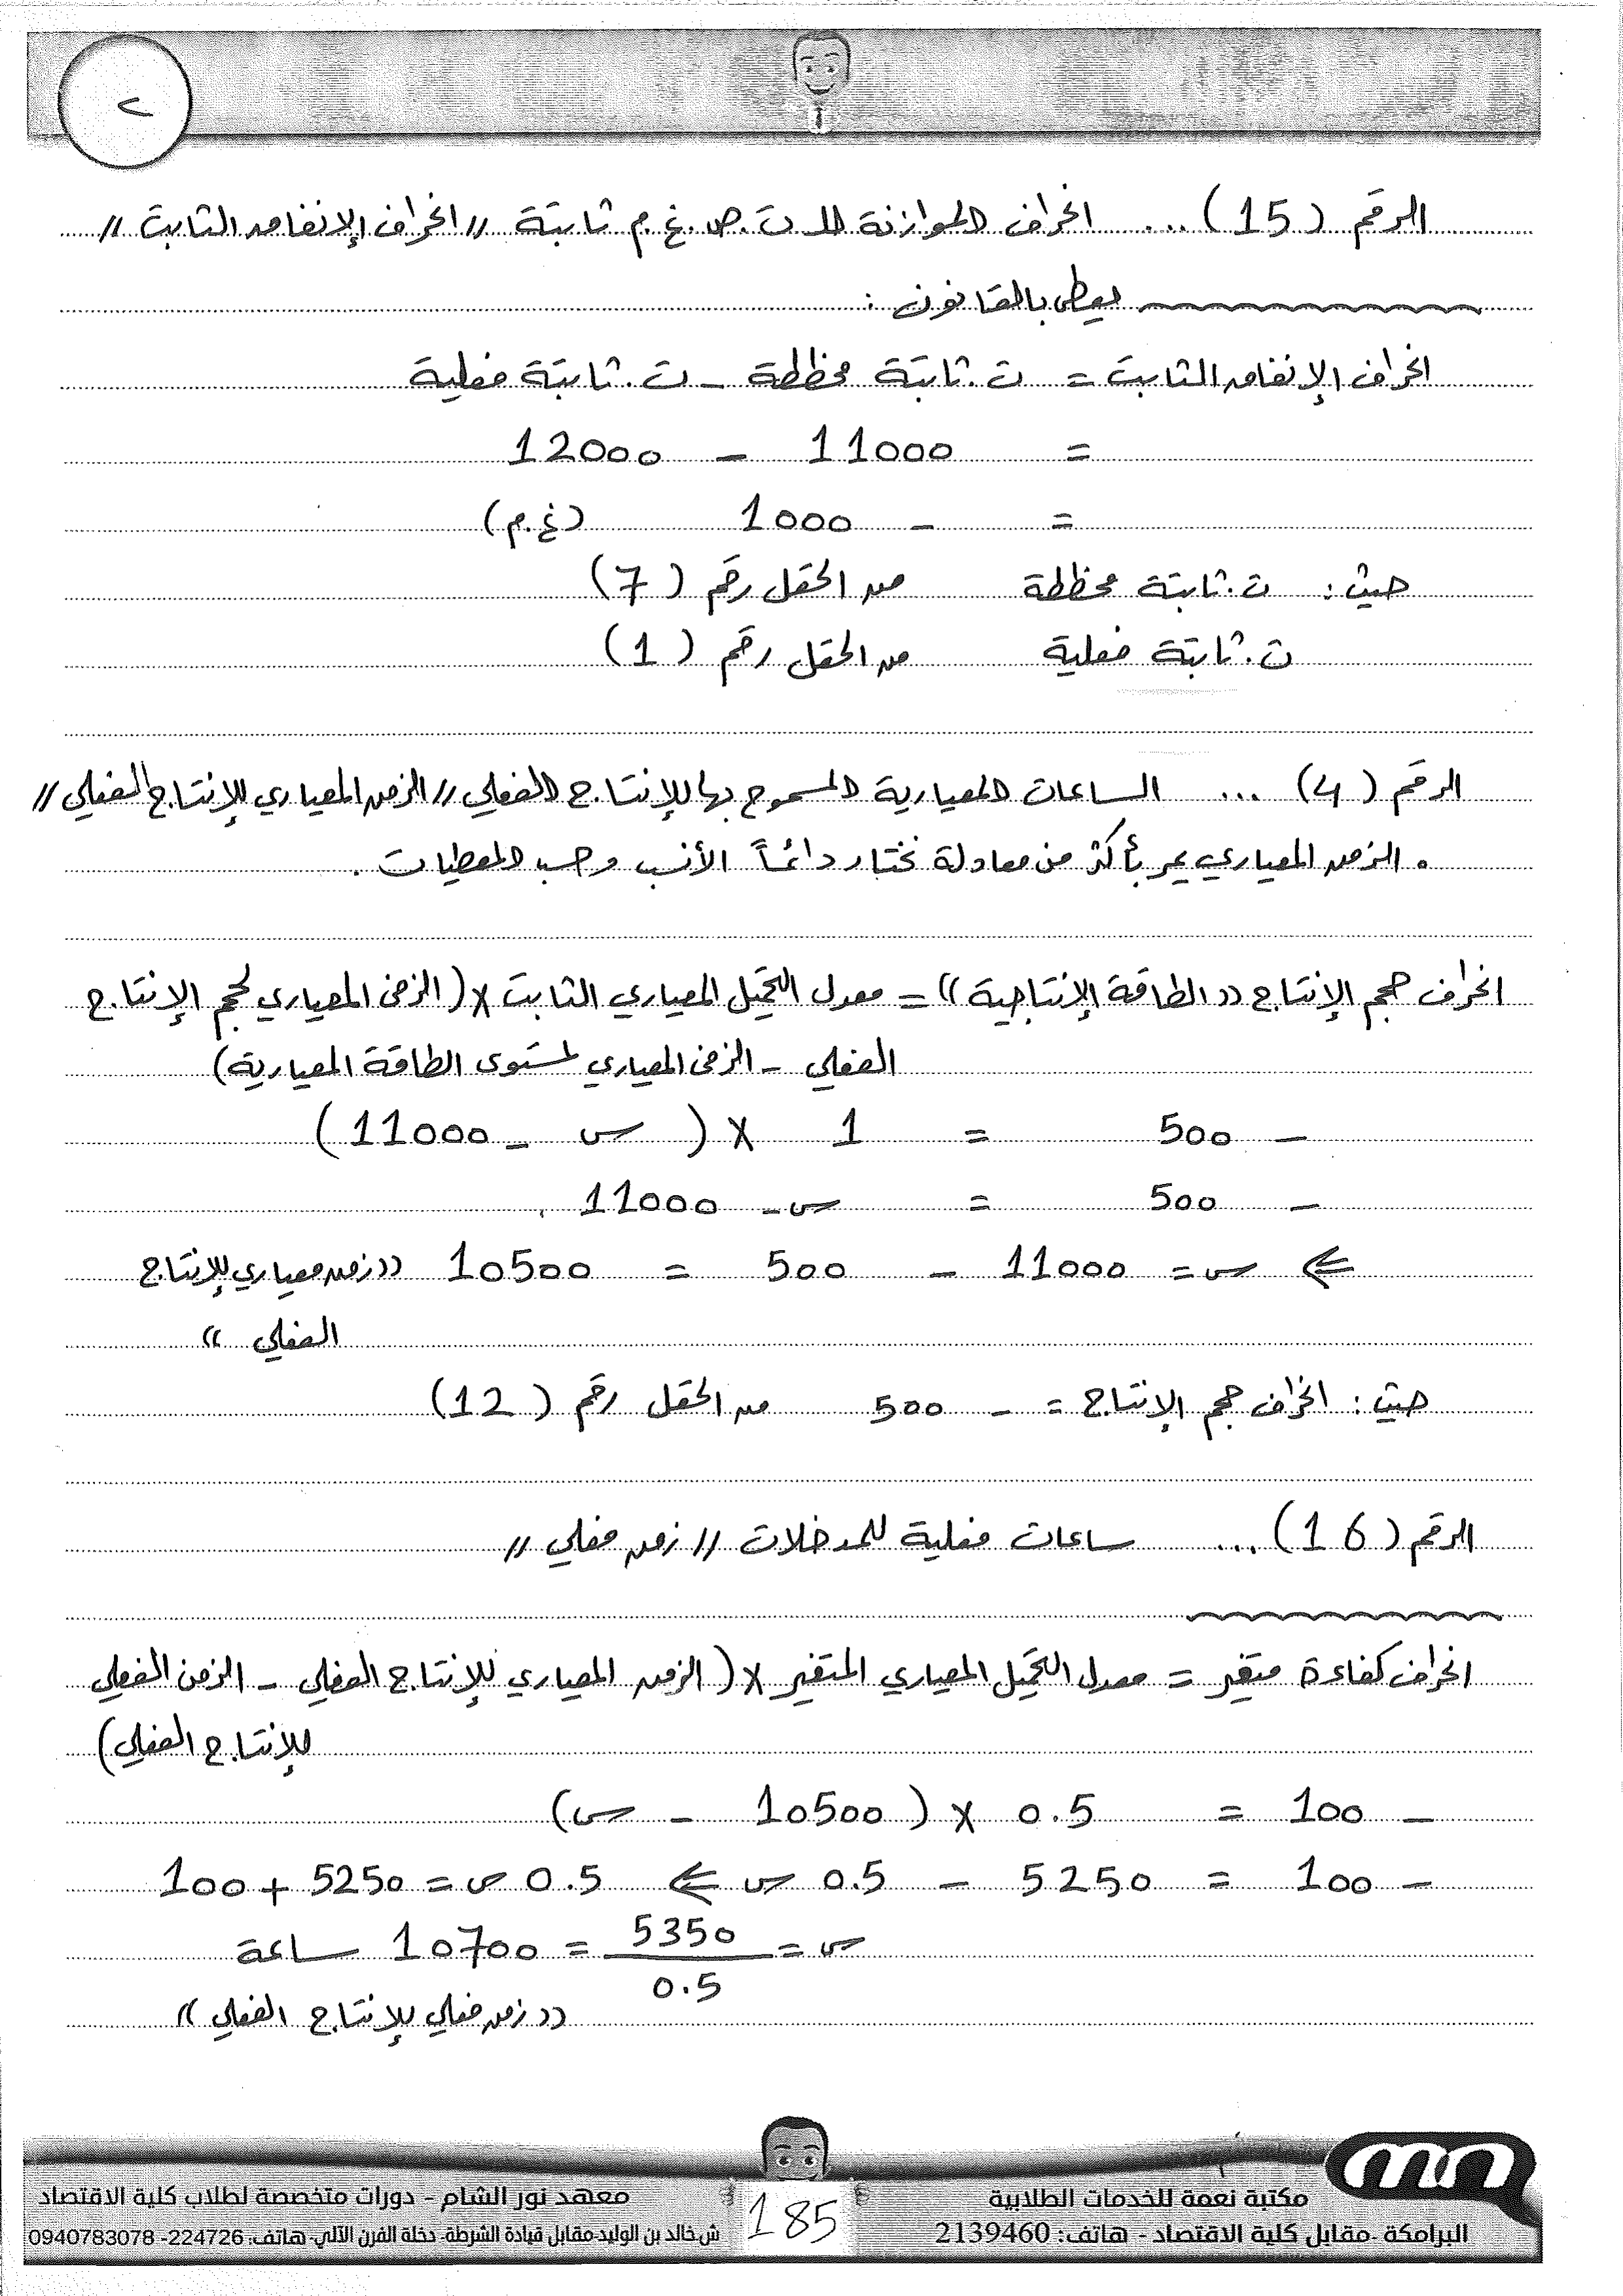 >
الرقم (15) ... انحراف الموازنة للـ ت.ص.غ.م ثابتة // انحراف الإنفاق الثابت //
يعطى بالقانون :
انحراف الإنفاق الثابت = ت.ثابتة مخططة - ت.ثابتة فعلية
= 11000 - 12000
= - 1000 (غ.م)
حيث : ت.ثابتة مخططة من الحقل رقم (7)
ت.ثابتة فعلية من الحقل رقم (1)
الرقم (4) ... الساعات المعيارية المسموح بها للإنتاج الفعلي // الزمن المعياري للإنتاج الفعلي //
• الزمن المعياري يمر بأكثر من معادلة نختار دائماً الأنسب وحسب المعطيات .
انحراف حجم الإنتاج (( الطاقة الإنتاجية )) = معدل التحميل المعياري الثابت × ( الزمن المعياري لحجم الإنتاج
الفعلي - الزمن المعياري لمستوى الطاقة المعيارية)
- 500 = 1 × ( س - 11000 )
- 500 = س - 11000
⇐ س = 11000 - 500 = 10500 (( زمن معياري للإنتاج
الفعلي ))
حيث : انحراف حجم الإنتاج = - 500 من الحقل رقم (12)
الرقم (16) ... ساعات فعلية للمدخلات // زمن فعلي //
انحراف كفاءة متغير = معدل التحميل المعياري المتغير × ( الزمن المعياري للإنتاج الفعلي - الزمن الفعلي
للإنتاج الفعلي)
- 100 = 0.5 × ( 10500 - س )
- 100 = 5250 - 0.5 س ⇐ 0.5 س = 5250 + 100
س = 5350 / 0.5 = 10700 ساعة
(( زمن فعلي للإنتاج الفعلي ))
mn
مكتبة نعمة للخدمات الطلابية
البرامكة -مقابل كلية الاقتصاد - هاتف: 2139460
185
معهد نور الشام - دورات متخصصة لطلاب كلية الاقتصاد
ش.خالد بن الوليد-مقابل قيادة الشرطة- دخلة الفرن الآلي- هاتف: 224726- 0940783078